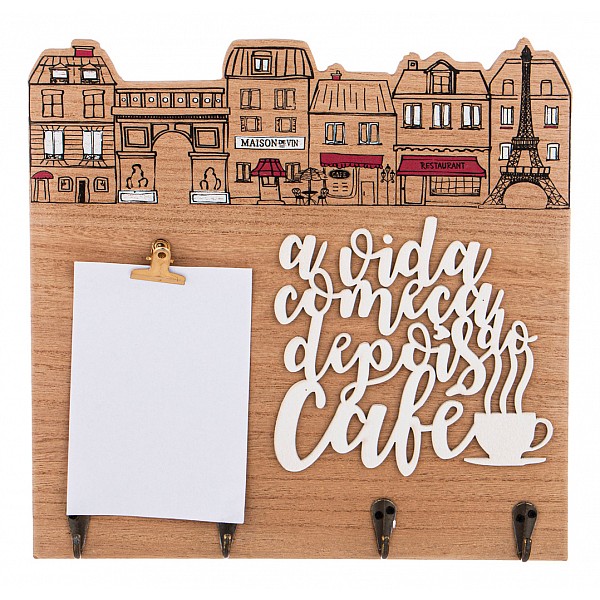 MAISON DE VIN
CAFE
RESTAURANT
a vida
começa
depois do
Café